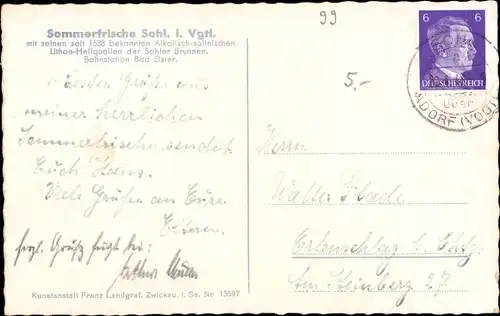 99
Sommerfrische Sohl. i. Vgtl.
mit seinen seit 1538 bekannten Alkalisch-salinischen
Lithon-Heilquellen der Sohler Brunnen.
Bahnstation Bad Elster.
5,-
6 6
DEUTSCHES REICH
über
ADORF (VOGTL
Besten Grüße aus
meiner herrlichen
Sommerfrische sendet
Euch Hans.
Viele Grüße an Eure
Eltern.
herzl. Grüße fügt bei:
Herrn
Walter Stade
Erlenschlag b.
Am Steinberg 27
Kunstanstalt Franz Landgraf, Zwickau, i. Sa. Nr. 13597